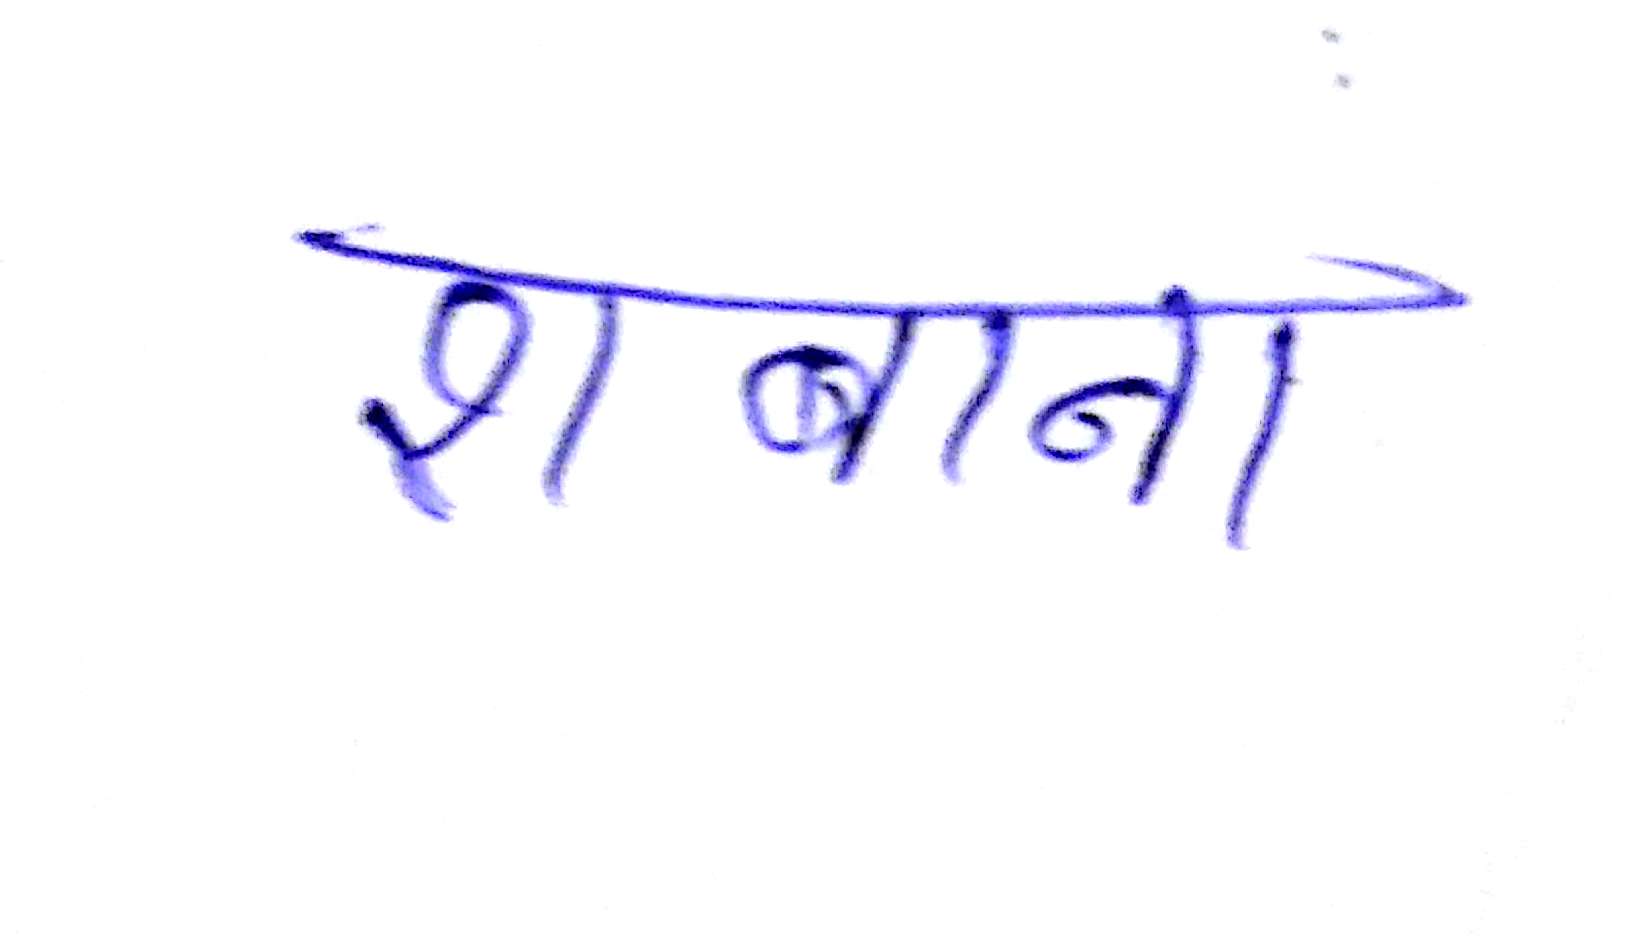 शबाना